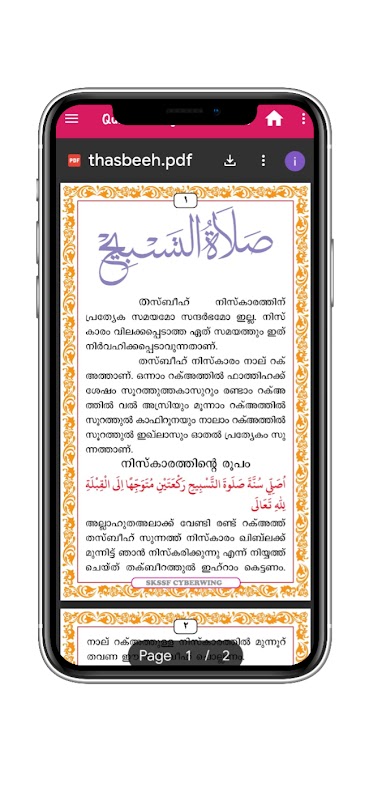 Qu
PDF thasbeeh.pdf
١
صَلَاةُ التَّسْبِيحْ
തസ്ബീഹ് നിസ്കാരത്തിന്
പ്രത്യേക സമയമോ സന്ദർഭമോ ഇല്ല. നിസ്
കാരം വിലക്കപ്പെടാത്ത ഏത് സമയത്തും ഇത്
നിർവഹിക്കപ്പെടാവുന്നതാണ്.
തസ്ബീഹ് നിസ്കാരം നാല് റക്
അത്താണ്. ഒന്നാം റക്അത്തിൽ ഫാത്തിഹക്ക്
ശേഷം സൂറത്തുത്തകാസുറും രണ്ടാം റക്അ
ത്തിൽ വൽ അസ്വ്‌രിയും മൂന്നാം റക്അത്തിൽ
സൂറത്തുൽ കാഫിറൂനയും നാലാം റക്അത്തിൽ
സൂറത്തുൽ ഇഖ്ലാസും ഓതൽ പ്രത്യേകം സു
ന്നത്താണ്.
നിസ്കാരത്തിന്റെ രൂപം
اُصَلِّي سُنَّةَ صَلَوةِ التَّسْبِيحِ رَكْعَتَيْنِ مُتَوَجِّهًا اِلَى الْقِبْلَةِ
لِلّٰهِ تَعَالَى
അല്ലാഹുതആലാക്ക് വേണ്ടി രണ്ട് റക്അത്ത്
തസ്ബീഹ് സുന്നത്ത് നിസ്കാരം ഖിബ്‌ലക്ക്
മുന്നിട്ട് ഞാൻ നിസ്കരിക്കുന്നു എന്ന് നിയ്യത്ത്
ചെയ്ത് തക്ബീറത്തുൽ ഇഹ്റാം കെട്ടണം.
SKSSF CYBERWING
٢
നാല് റക്അത്തുള്ള നിസ്കാരത്തിൽ മുന്നൂറ്
തവണ ഈ
Page 1 / 2